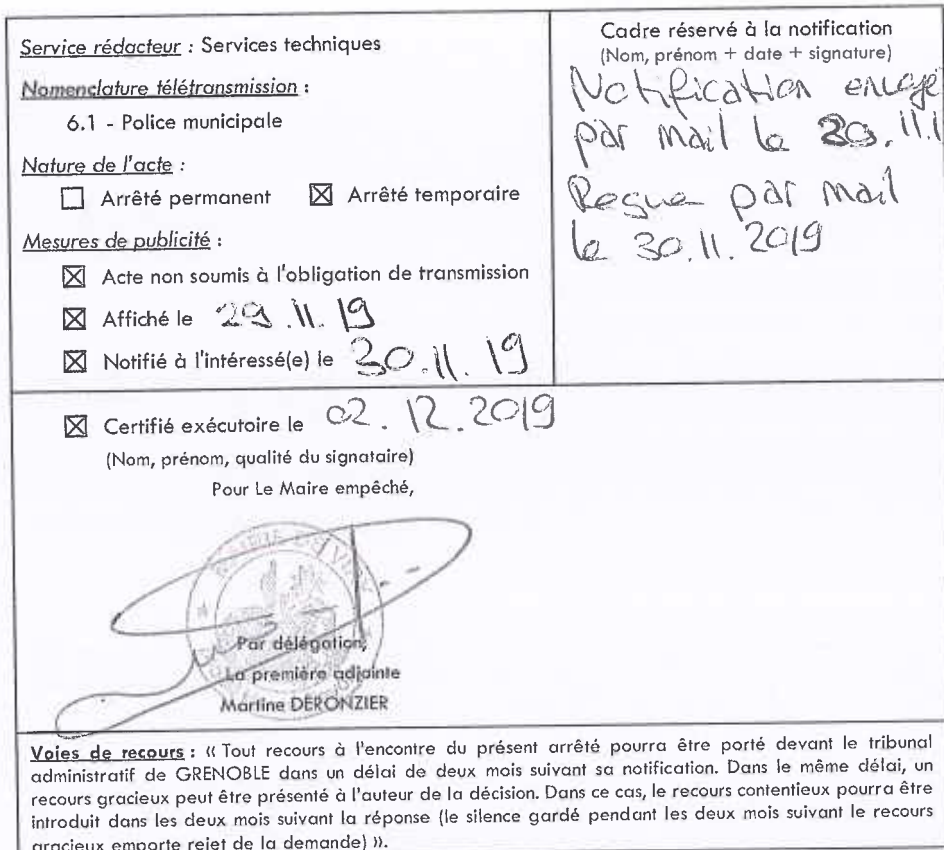 Service rédacteur : Services techniques
Nomenclature télétransmission :
6.1 - Police municipale
Nature de l'acte :
☐ Arrêté permanent ☒ Arrêté temporaire
Mesures de publicité :
☒ Acte non soumis à l'obligation de transmission
☒ Affiché le 29.11.19
☒ Notifié à l'intéressé(e) le 30.11.19
Cadre réservé à la notification
(Nom, prénom + date + signature)
Notification
par mail le 30.11.1
Reçue par mail
le 30.11.2019
☒ Certifié exécutoire le 02.12.2019
(Nom, prénom, qualité du signataire)
Pour Le Maire empêché,
Par délégation,
La première adjointe
Martine DERONZIER
Voies de recours : « Tout recours à l'encontre du présent arrêté pourra être porté devant le tribunal
administratif de GRENOBLE dans un délai de deux mois suivant sa notification. Dans le même délai, un
recours gracieux peut être présenté à l'auteur de la décision. Dans ce cas, le recours contentieux pourra être
introduit dans les deux mois suivant la réponse (le silence gardé pendant les deux mois suivant le recours
gracieux emporte rejet de la demande) ».